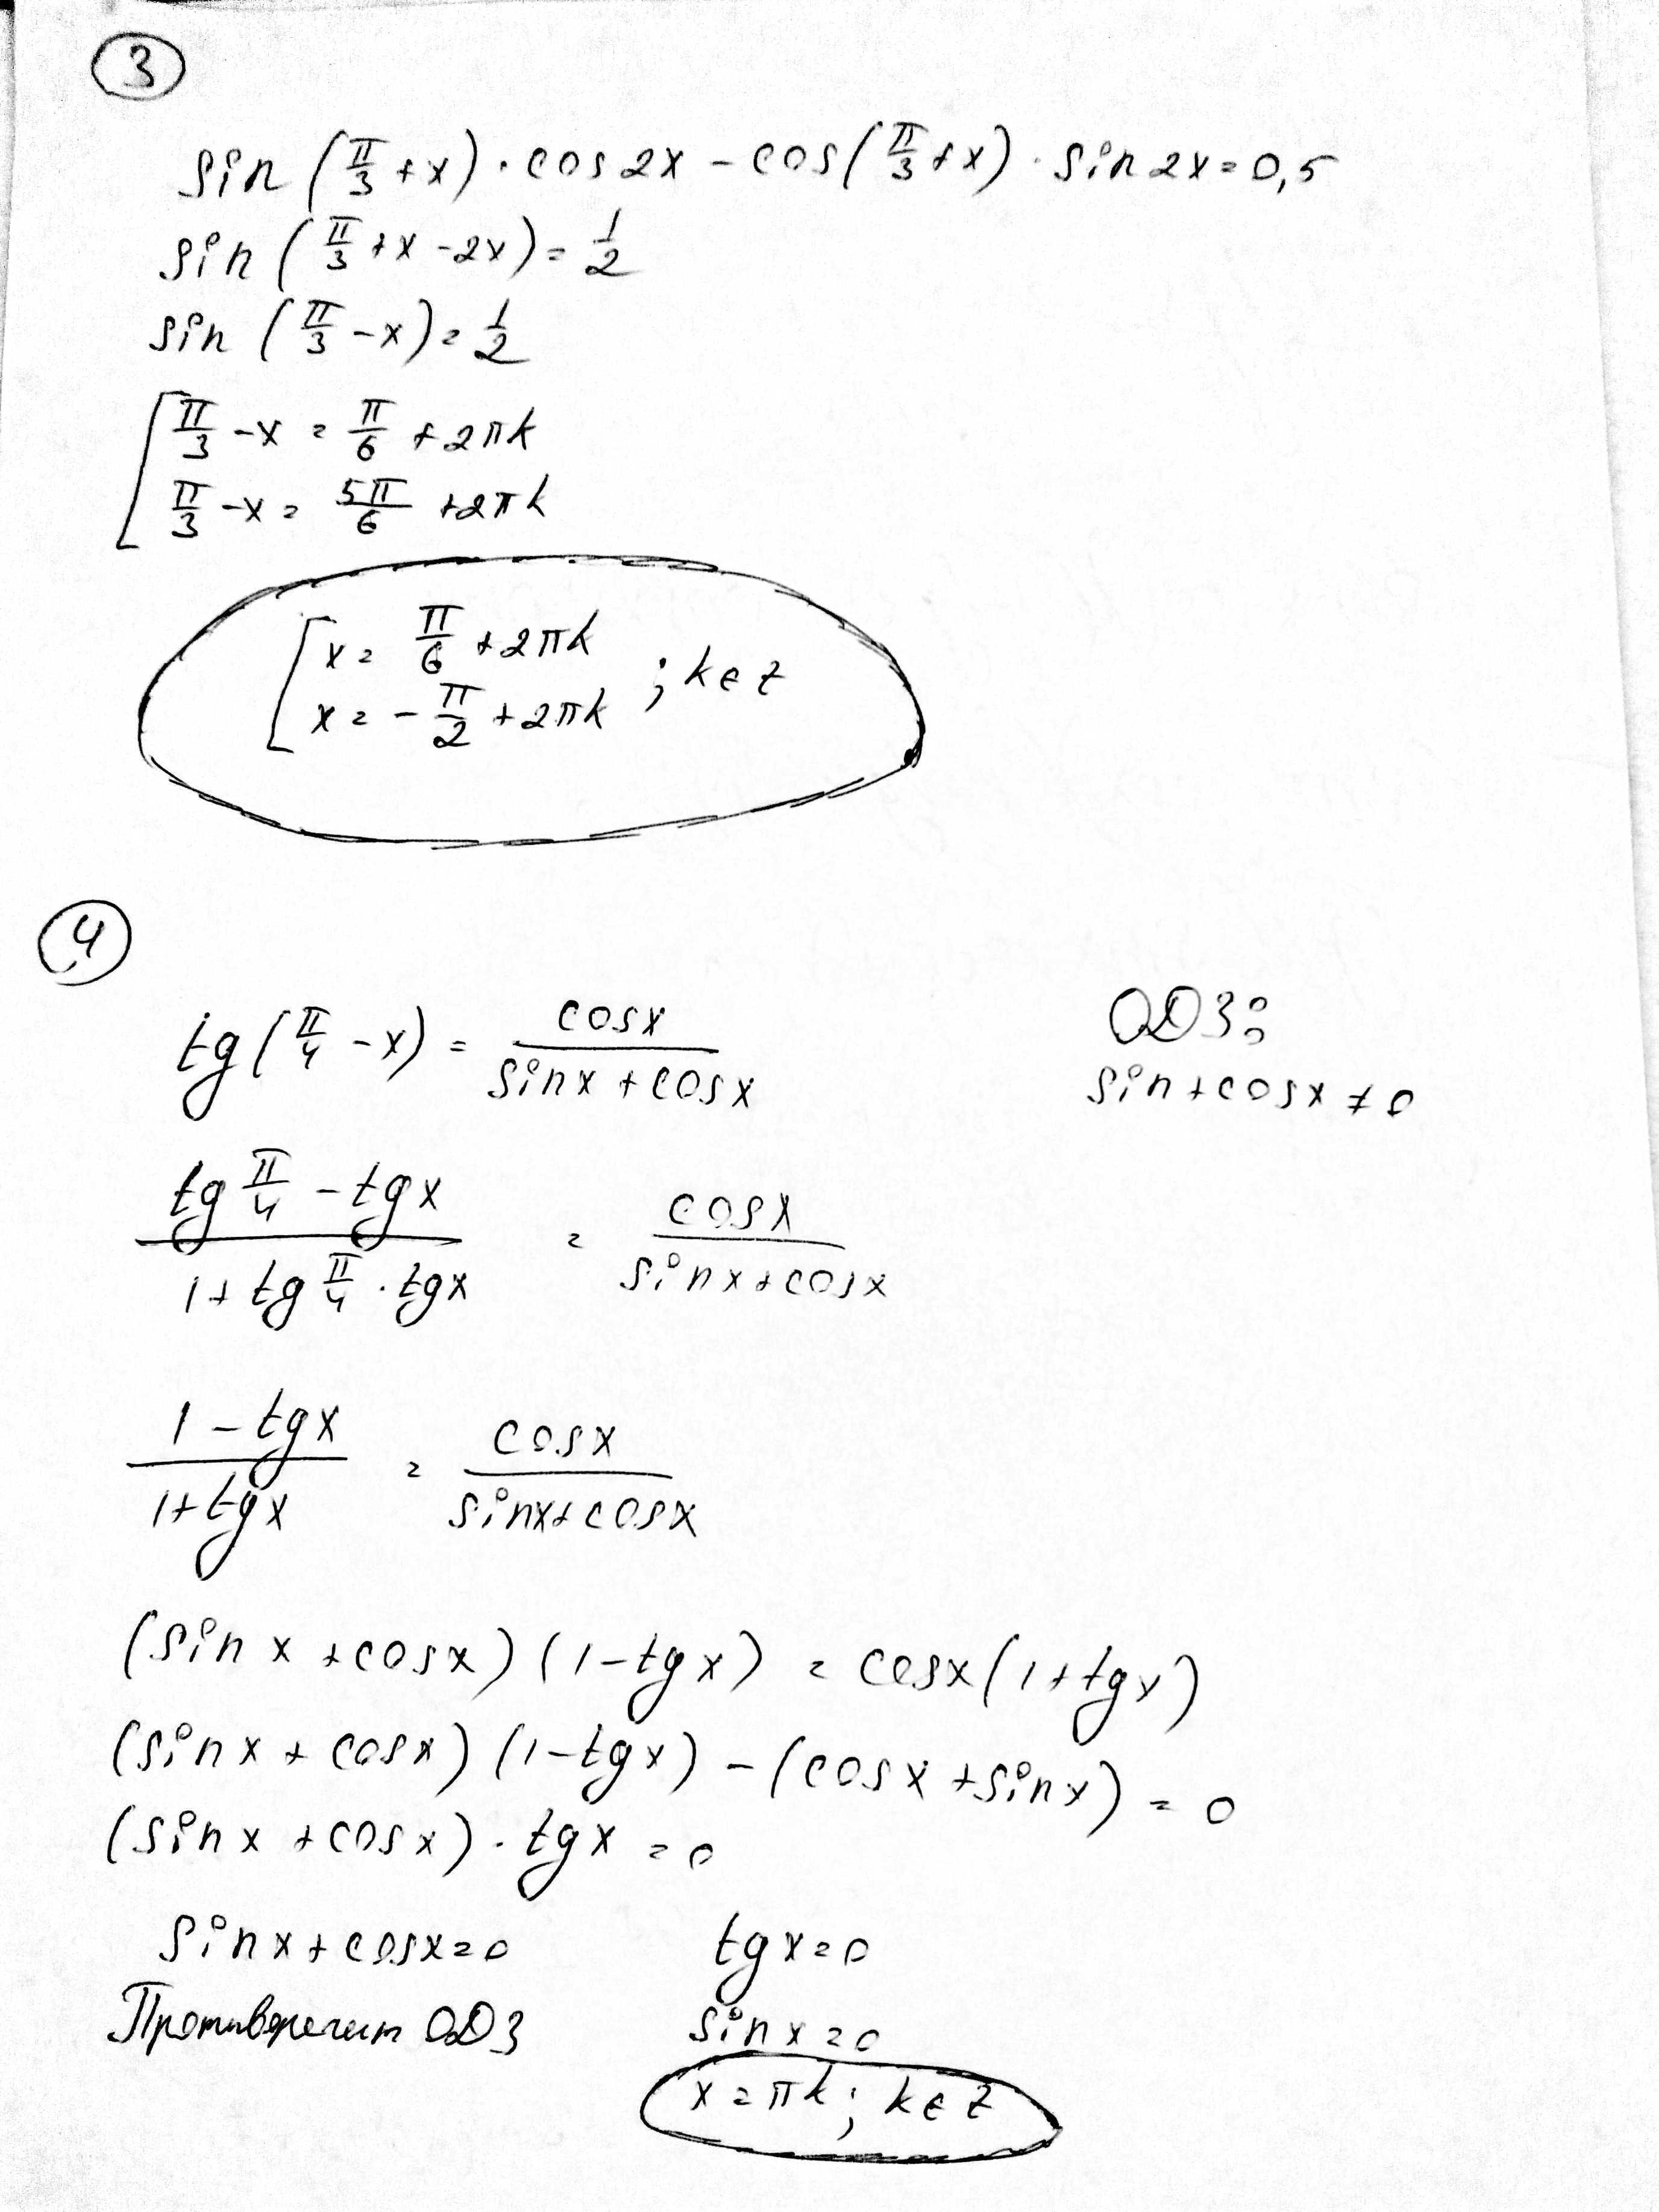 3
sin (π/3 + x) · cos 2x - cos (π/3 + x) · sin 2x = 0,5
sin (π/3 + x - 2x) = 1/2
sin (π/3 - x) = 1/2
[ π/3 - x = π/6 + 2πk
π/3 - x = 5π/6 + 2πk
[ x = π/6 + 2πk
x = - π/2 + 2πk ; k ∈ z
4
tg (π/4 - x) = cosx / (sinx + cosx)
ОДЗ:
sin + cosx ≠ 0
(tg π/4 - tgx) / (1 + tg π/4 · tgx) = cosx / (sinx + cosx)
(1 - tgx) / (1 + tgx) = cosx / (sinx + cosx)
(sin x + cosx) (1 - tgx) = cosx (1 + tgx)
(sinx + cosx) (1 - tgx) - (cosx + sinx) = 0
(sinx + cosx) · tgx = 0
sinx + cosx = 0
tgx = 0
Противоречит ОДЗ
sinx = 0
x = πk; k ∈ z